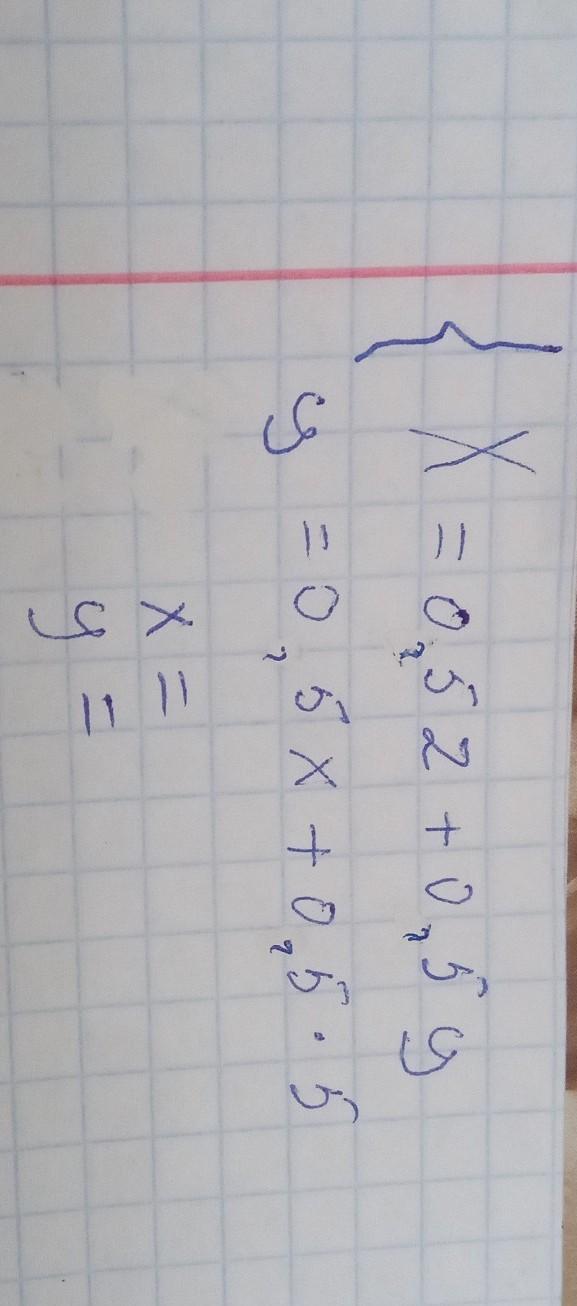 { x = 0,52 + 0,5y
y = 0,5x + 0,5 · 5
x =
y =